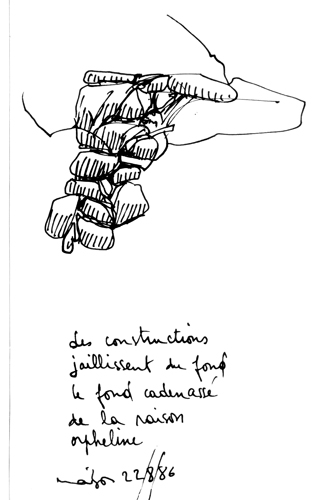 des constructions
jaillissent du fond
le fond cadenassé
de la raison
orpheline
22 8/86